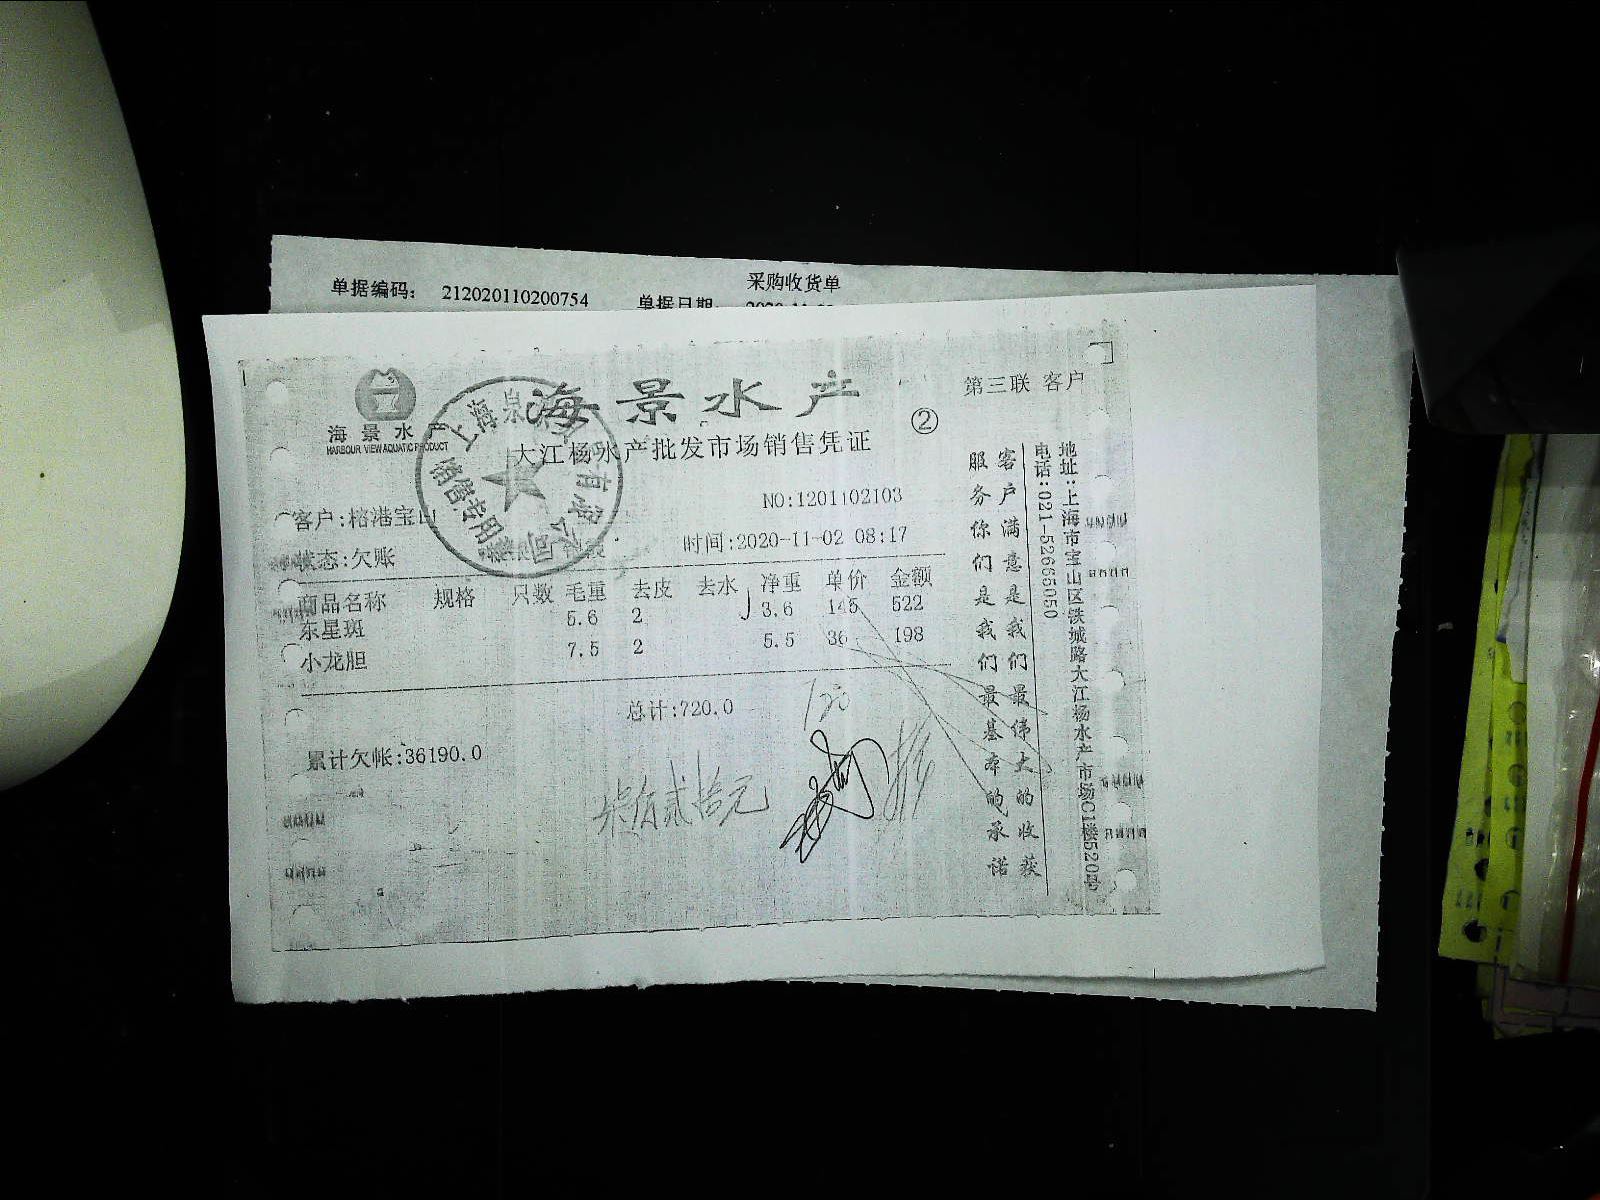 采购收货单
单据编码： 212020110200754 单据日期：
海景水产
第三联 客户
海景水产
HARBOUR VIEW AQUATIC PRODUCT
②
大江杨水产批发市场销售凭证
上海泉 有限公司
销售专用章
NO:1201102103
客户:榕港宝山
时间:2020-11-02 08:17
状态:欠账
商品名称 规格 只数 毛重 去皮 去水 净重 单价 金额
东星斑 5.6 2 3.6 145 522
小龙胆 7.5 2 5.5 36 198
总计:720.0
720
累计欠帐:36190.0
柒佰贰拾元
客户满意是我们最伟大的收获
服务你们是我们最基本的承诺
地址:上海市宝山区铁城路大江杨水产市场C1楼520号
电话:021-52665050